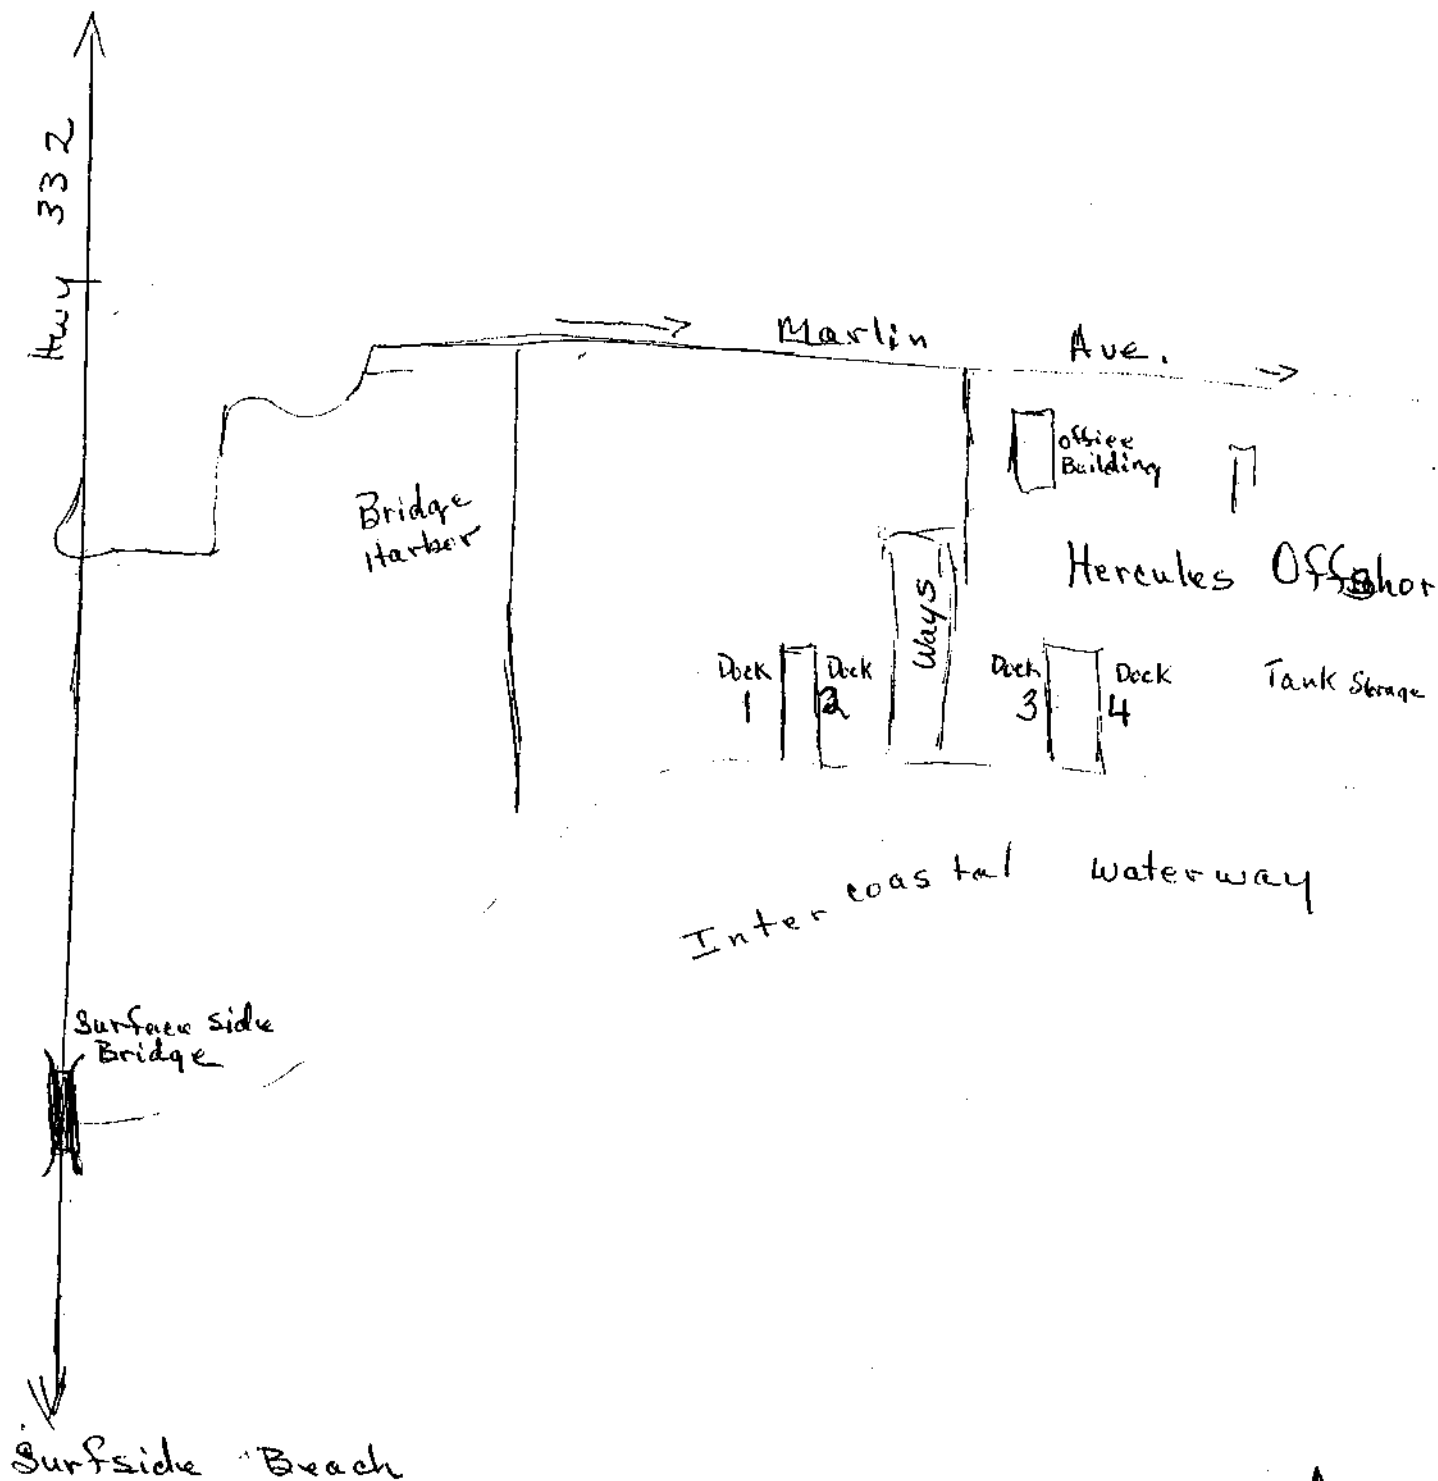 Hwy 332
Marlin Ave.
Office
Building
Bridge
Harbor
Hercules Offshor
Ways
Dock
1
Dock
2
Dock
3
Dock
4
Tank Storage
Intercoastal Waterway
Surface Side
Bridge
Surfside Beach